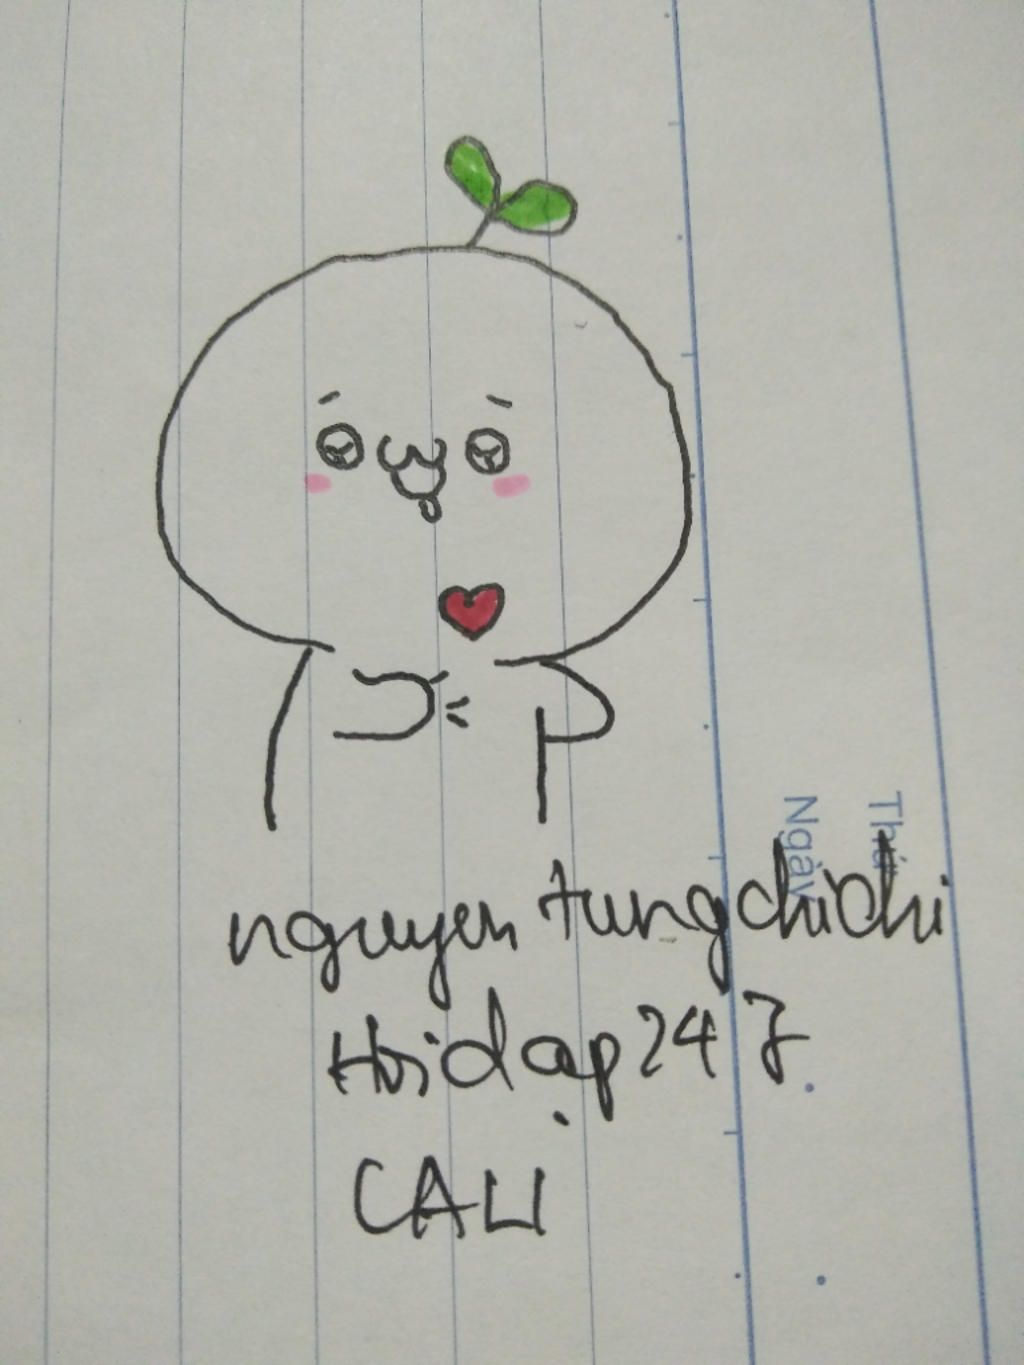 nguyen tungchichi
Hoidap247
CALI
Ngày
Thá